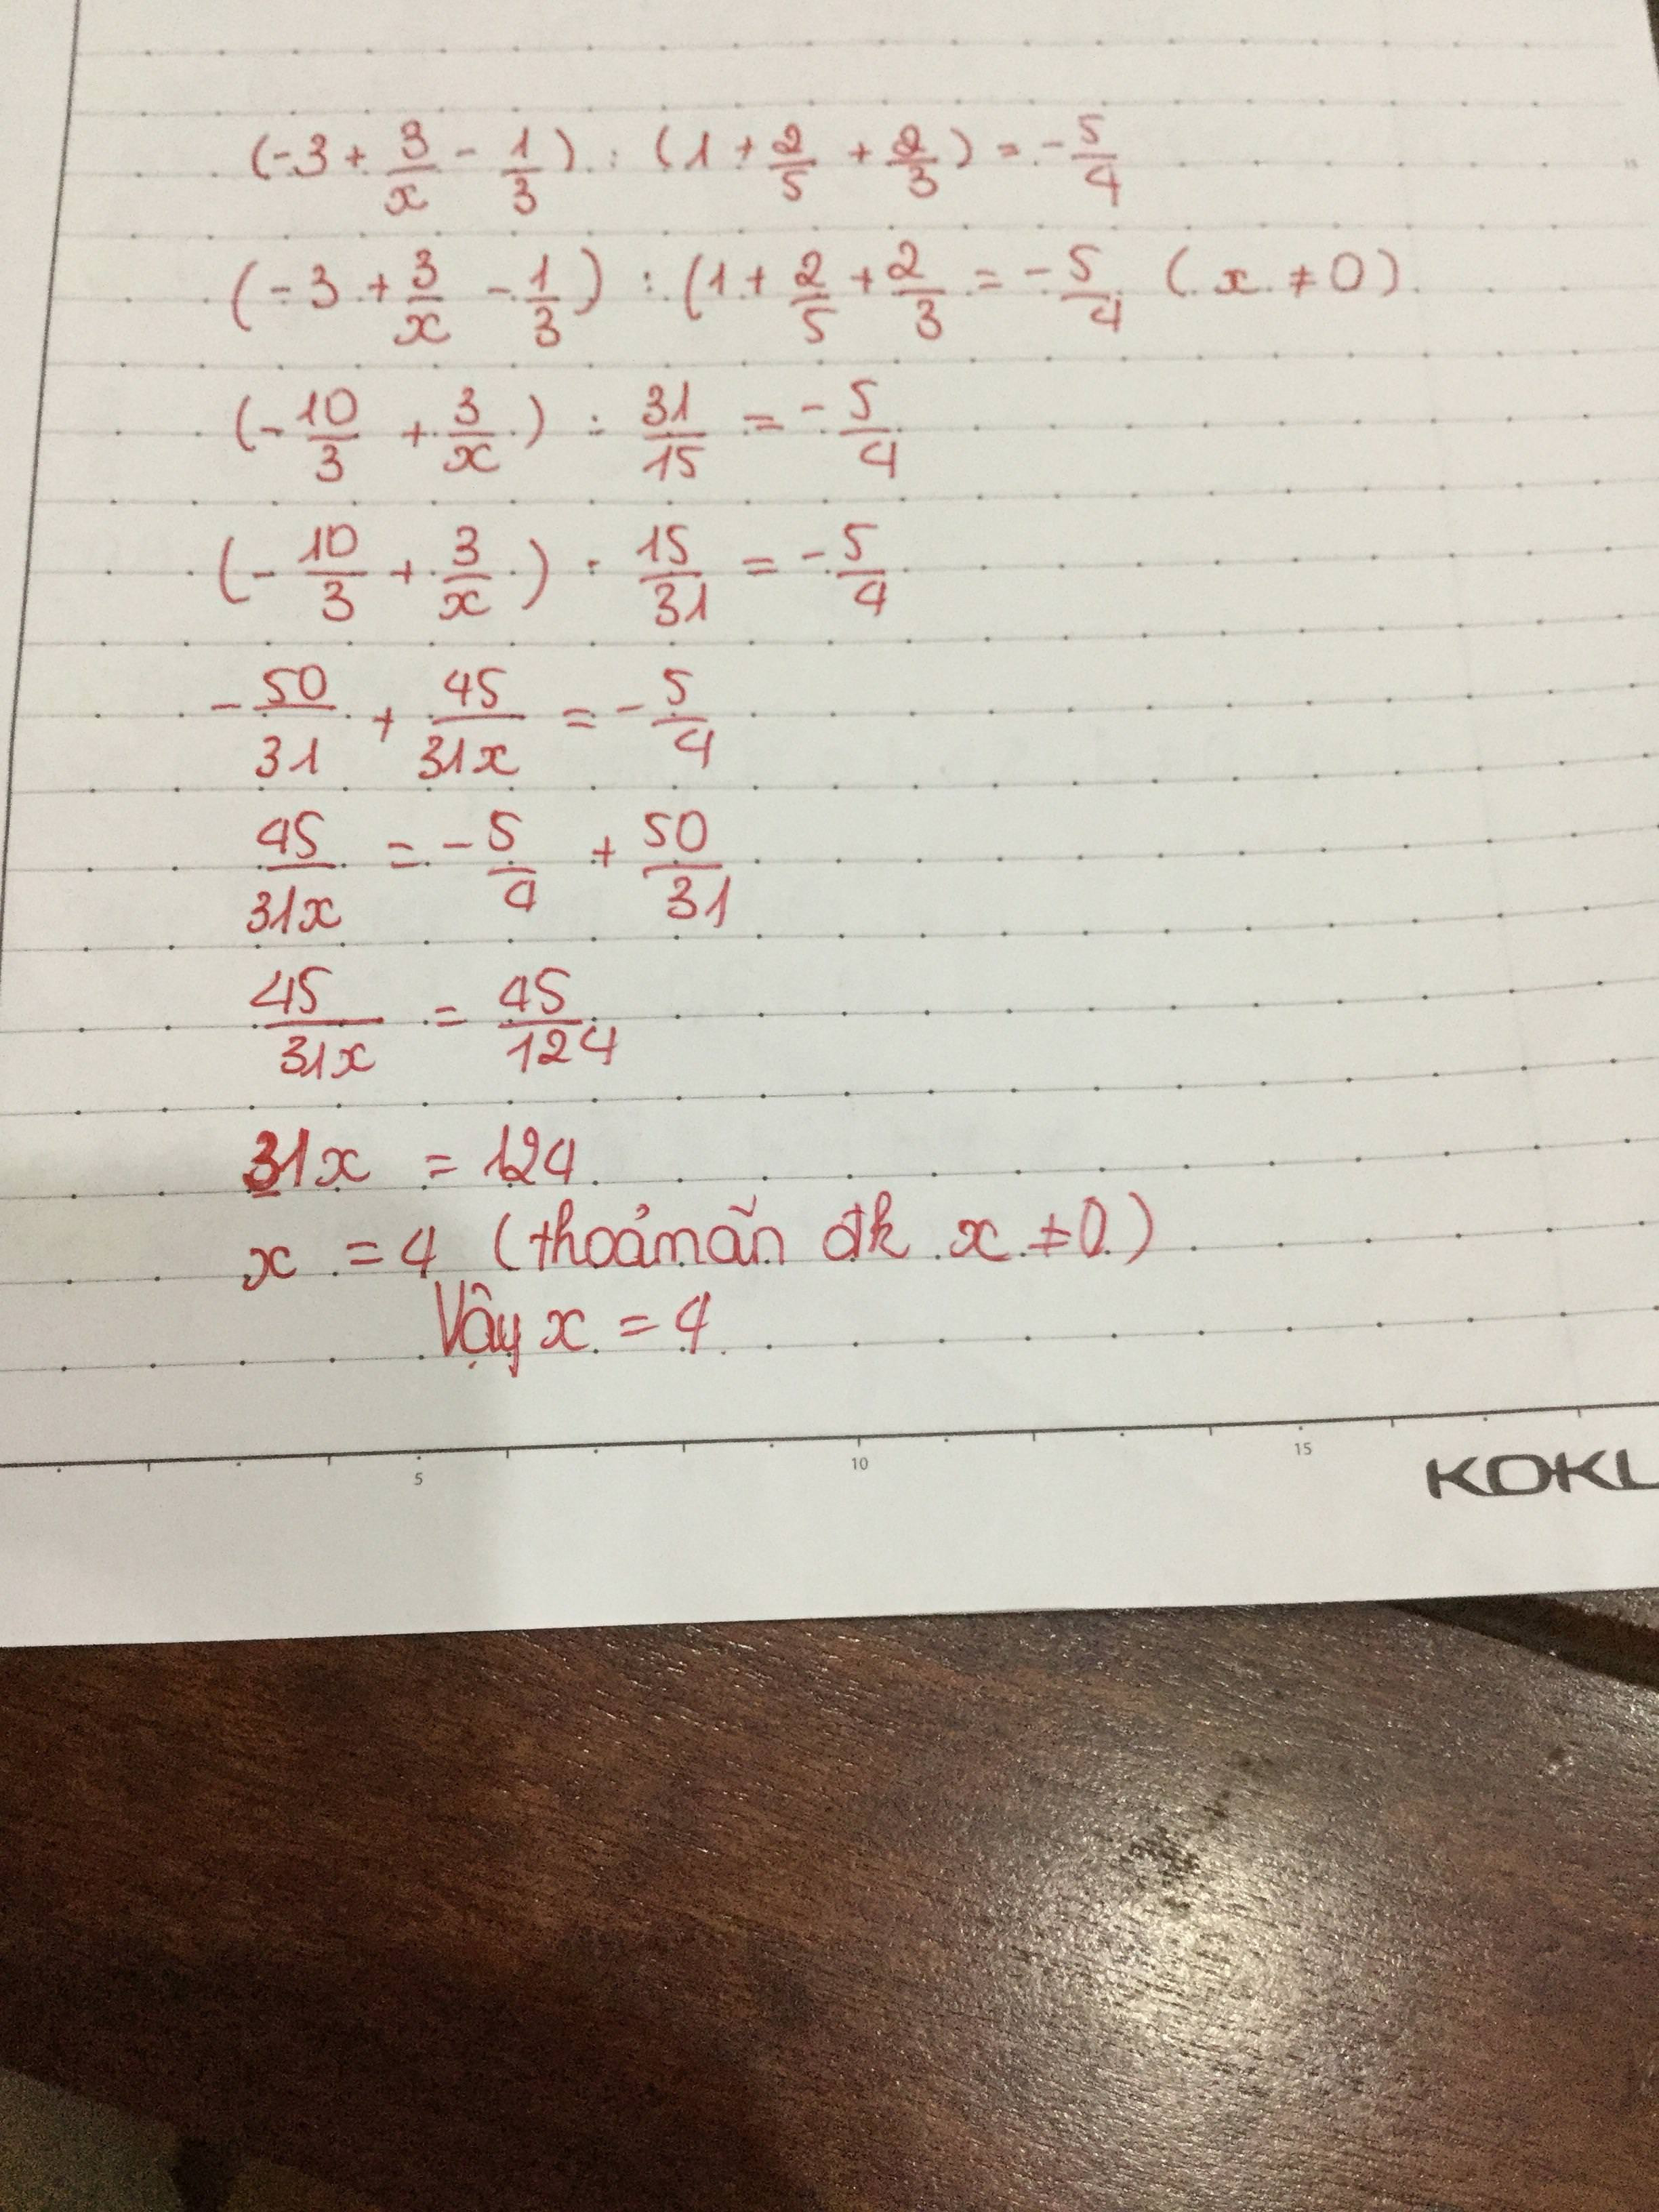 (-3 + 3/x - 1/3) : (1 + 2/5 + 2/3) = -5/4
(-3 + 3/x - 1/3) : (1 + 2/5 + 2/3 = -5/4 (x ≠ 0)
(-10/3 + 3/x) : 31/15 = -5/4
(-10/3 + 3/x) . 15/31 = -5/4
-50/31 + 45/31x = -5/4
45/31x = -5/4 + 50/31
45/31x = 45/124
31x = 124
x = 4 (thoả mãn đk x ≠ 0)
Vậy x = 4
5 10 15
KOKU